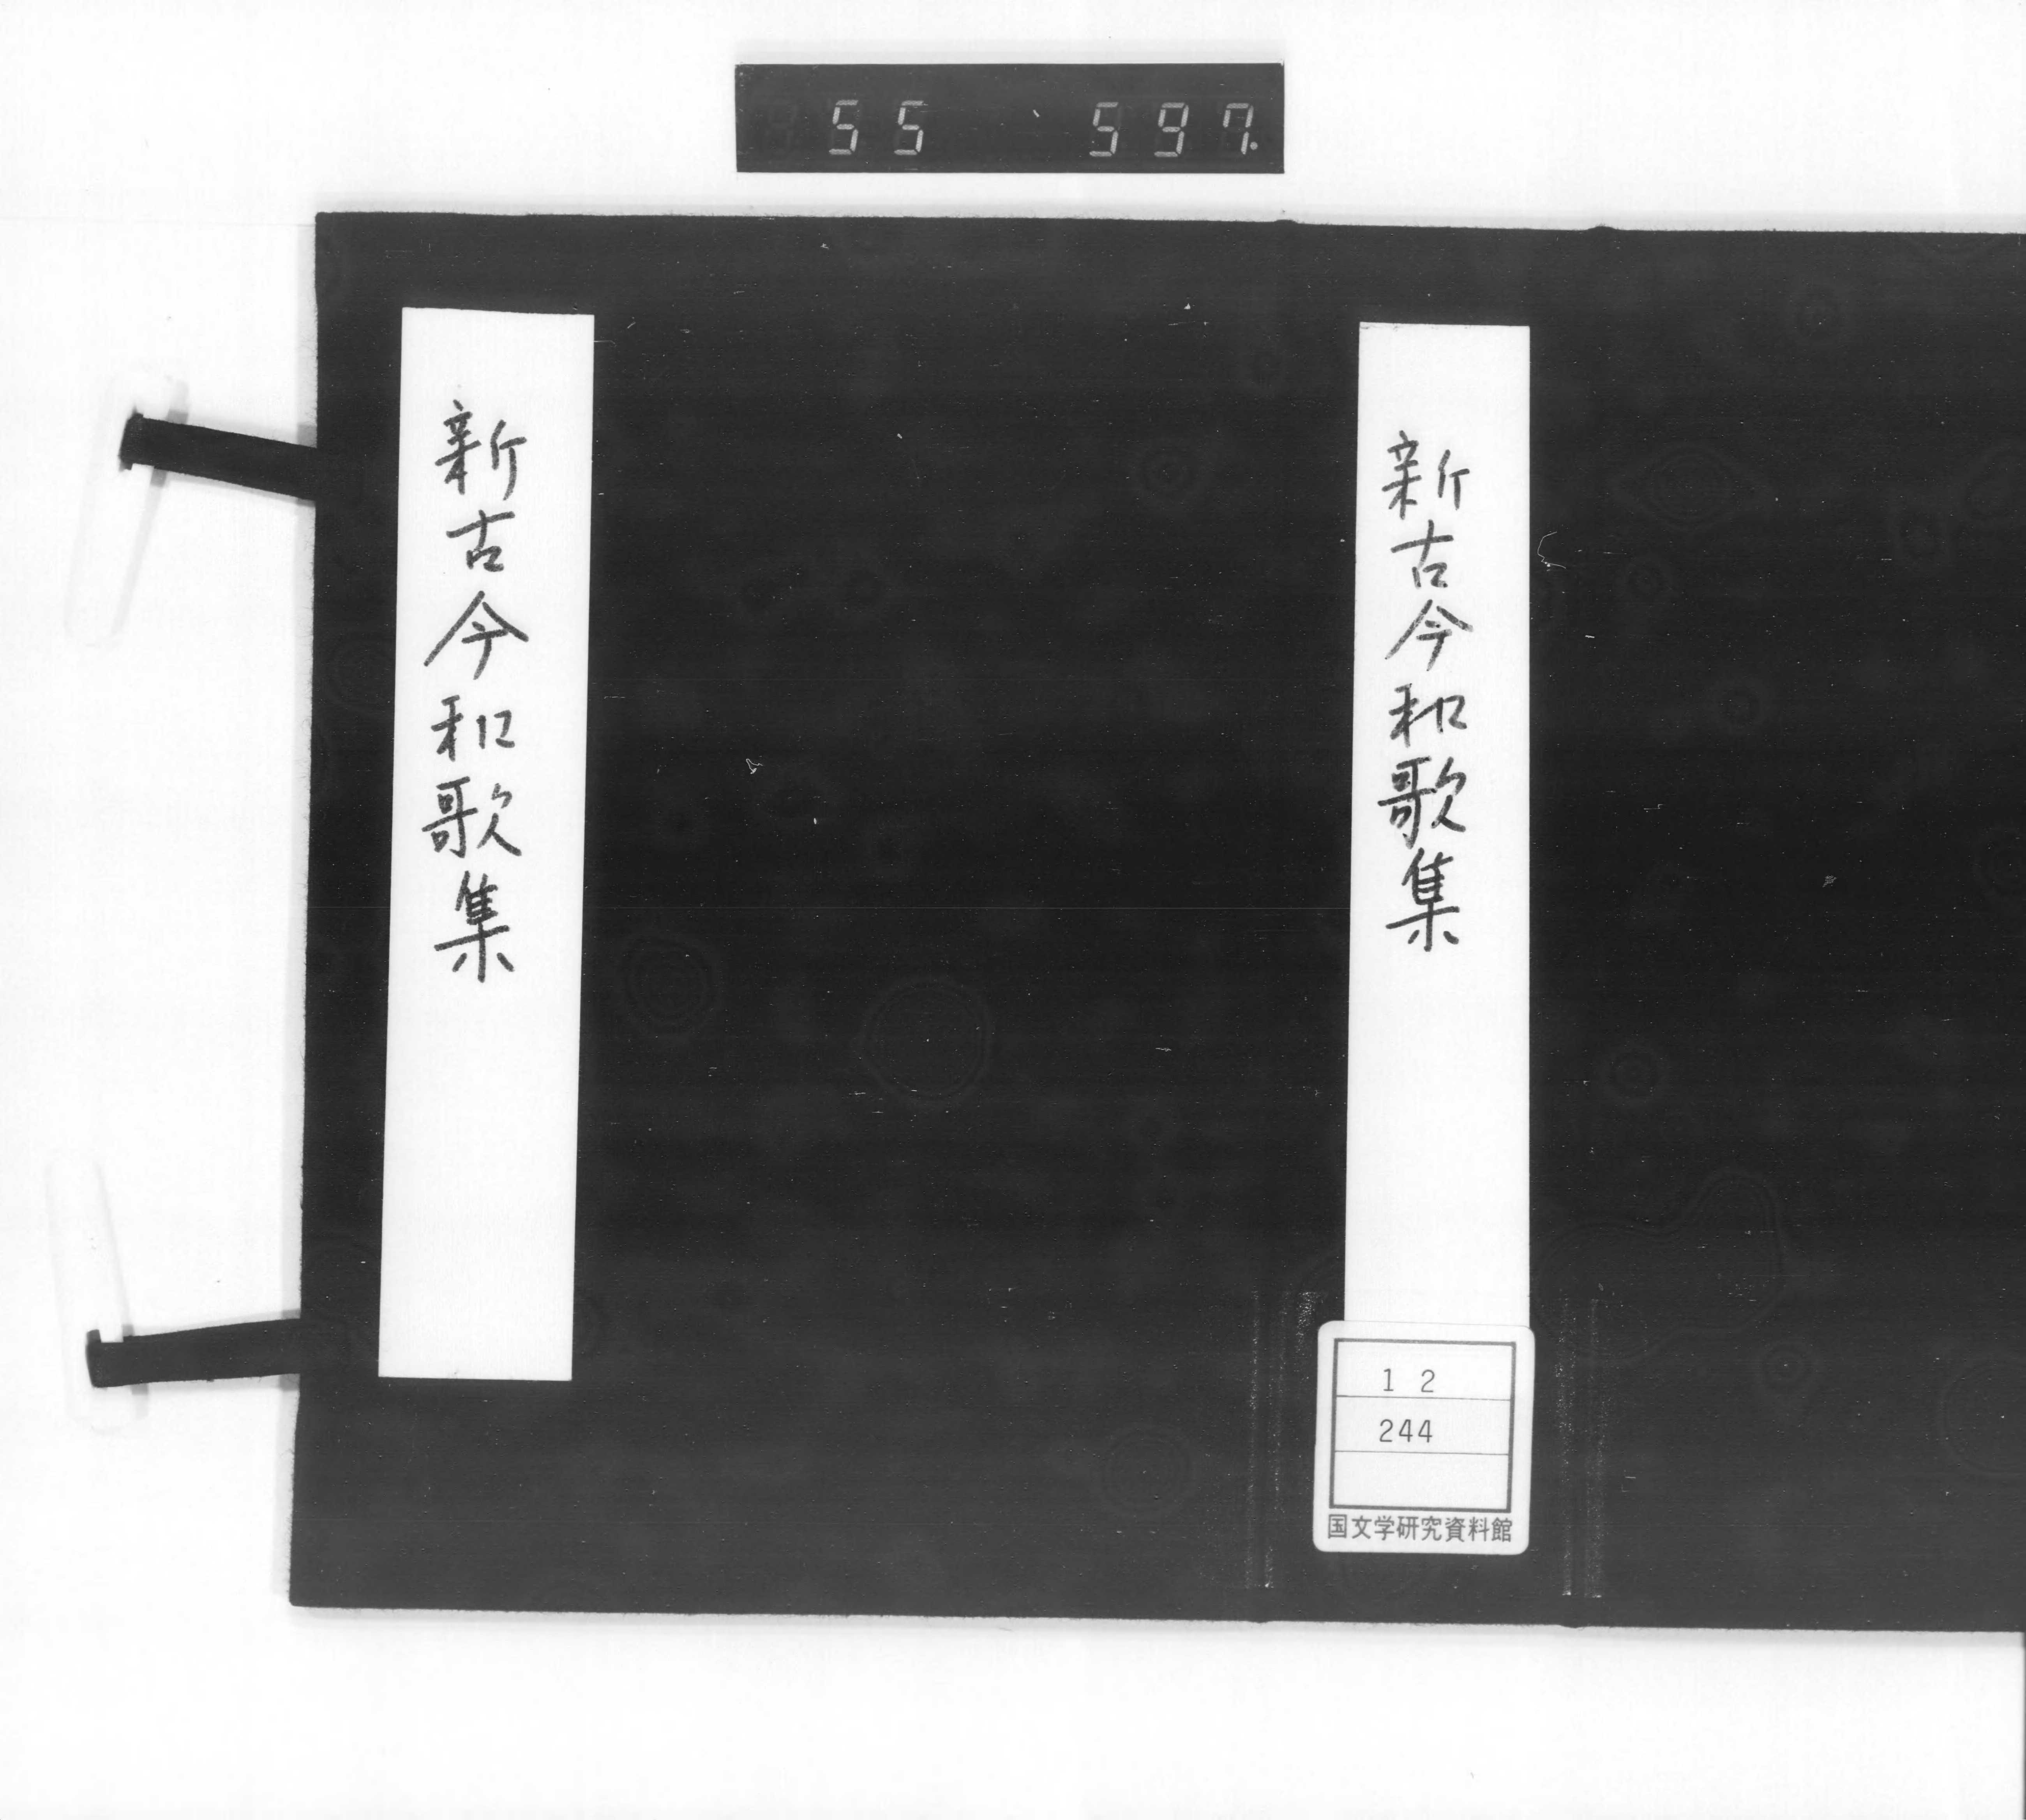 55 597.
新古今和歌集
新古今和歌集
12
244
国文学研究資料館